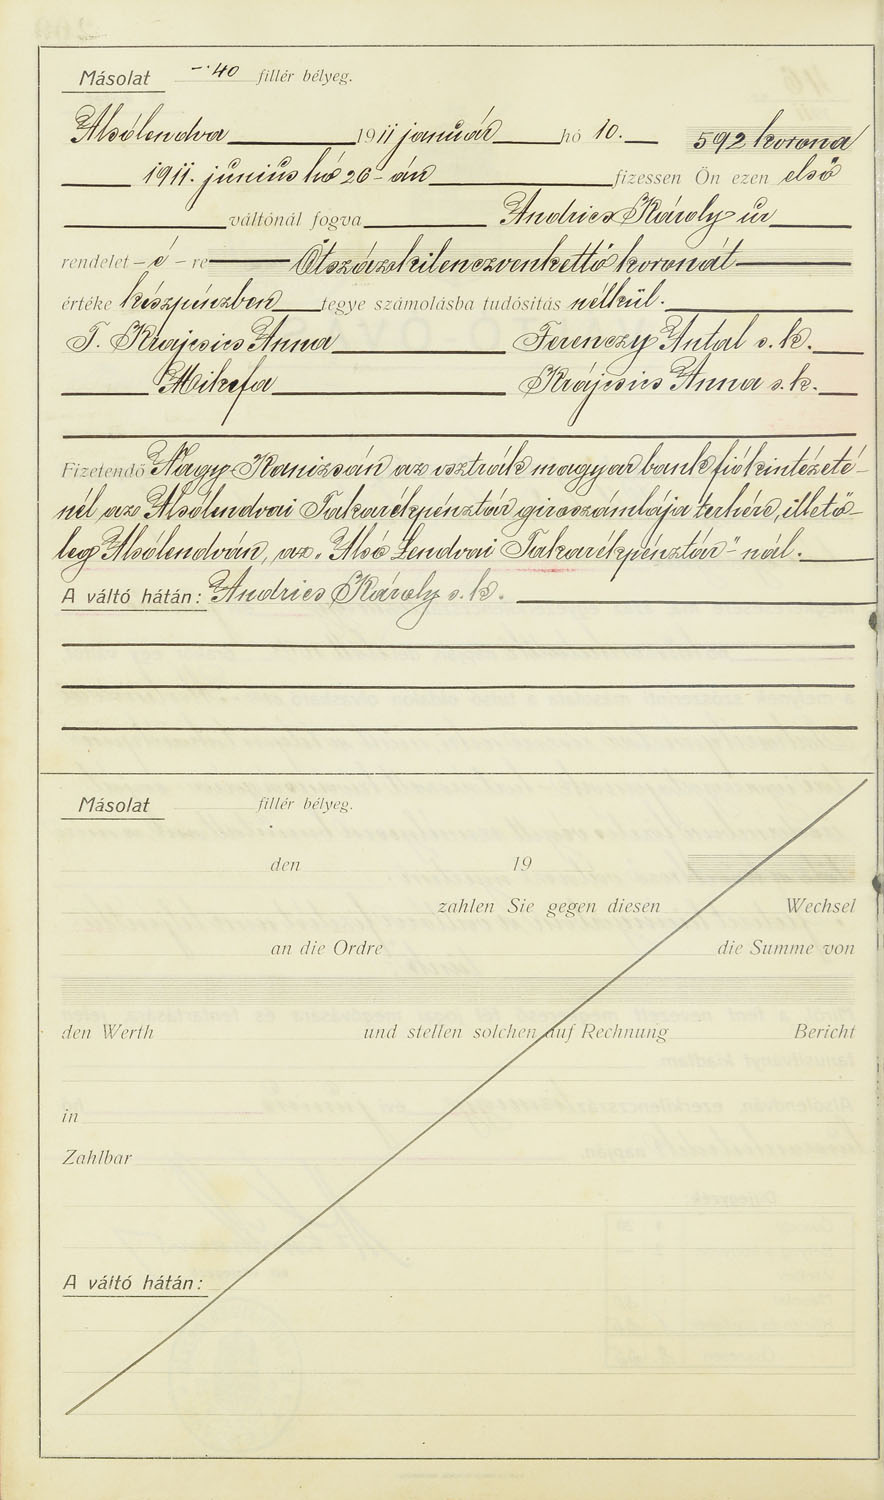 Másolat -·40 fillér bélyeg.
Alsólendva 1911 január hó 10. 592 korona
1911. junius hó 26-án fizessen Ön ezen első
váltónál fogva Andrics Károly úr
rendelet -é- re Ötszázkilenczvenkettő koronát
értéke készpénzben tegye számolásba tudósítás nélkül.
T. Krajcsics Anna Ferenczy Antal s. k.
Mikefa Krájcsics Anna s. k.
Fizetendő Nagy-Kanizsán az osztrák magyar bank fiókintézeté-
nél az Alsólendvai Takarékpénztár giroszámlája terhére, illető-
leg Alsólendván, az „Alsó Lendvai Takarékpénztár"-nál.
A váltó hátán: Andrics Károly s. k.
Másolat fillér bélyeg.
den 19
zahlen Sie gegen diesen Wechsel
an die Ordre die Summe von
den Werth und stellen solchen auf Rechnung Bericht
in
Zahlbar
A váltó hátán: